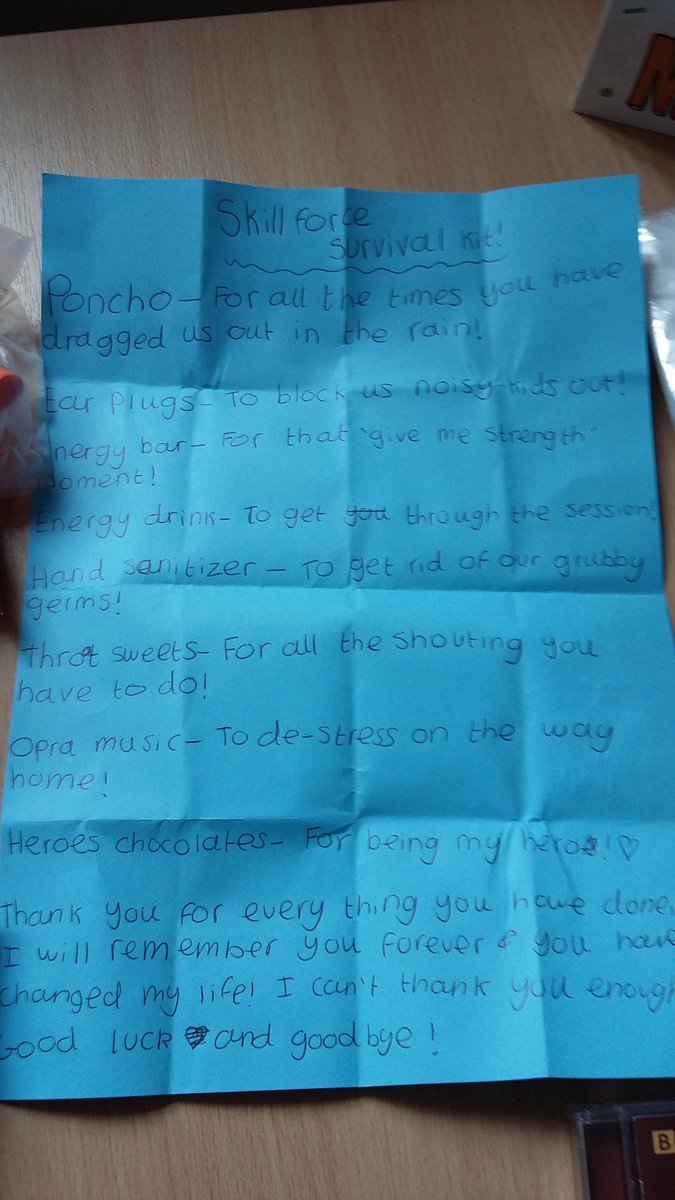 Skill force
Survival Kit!
Poncho - For all the times you have
dragged us out in the rain!
Ear Plugs - To block us noisy kids out!
Energy bar - For that "give me strength"
moment!
Energy drink - To get you through the session!
Hand sanitizer - To get rid of our grubby
germs!
Throt sweets - For all the shouting you
have to do!
Opra music - To de-stress on the way
home!
Heroes chocolates - For being my heros!♡
Thank you for every thing you have done.
I will remember you forever & you have
changed my life! I can't thank you enough
Good luck ♥ and goodbye!
M
B